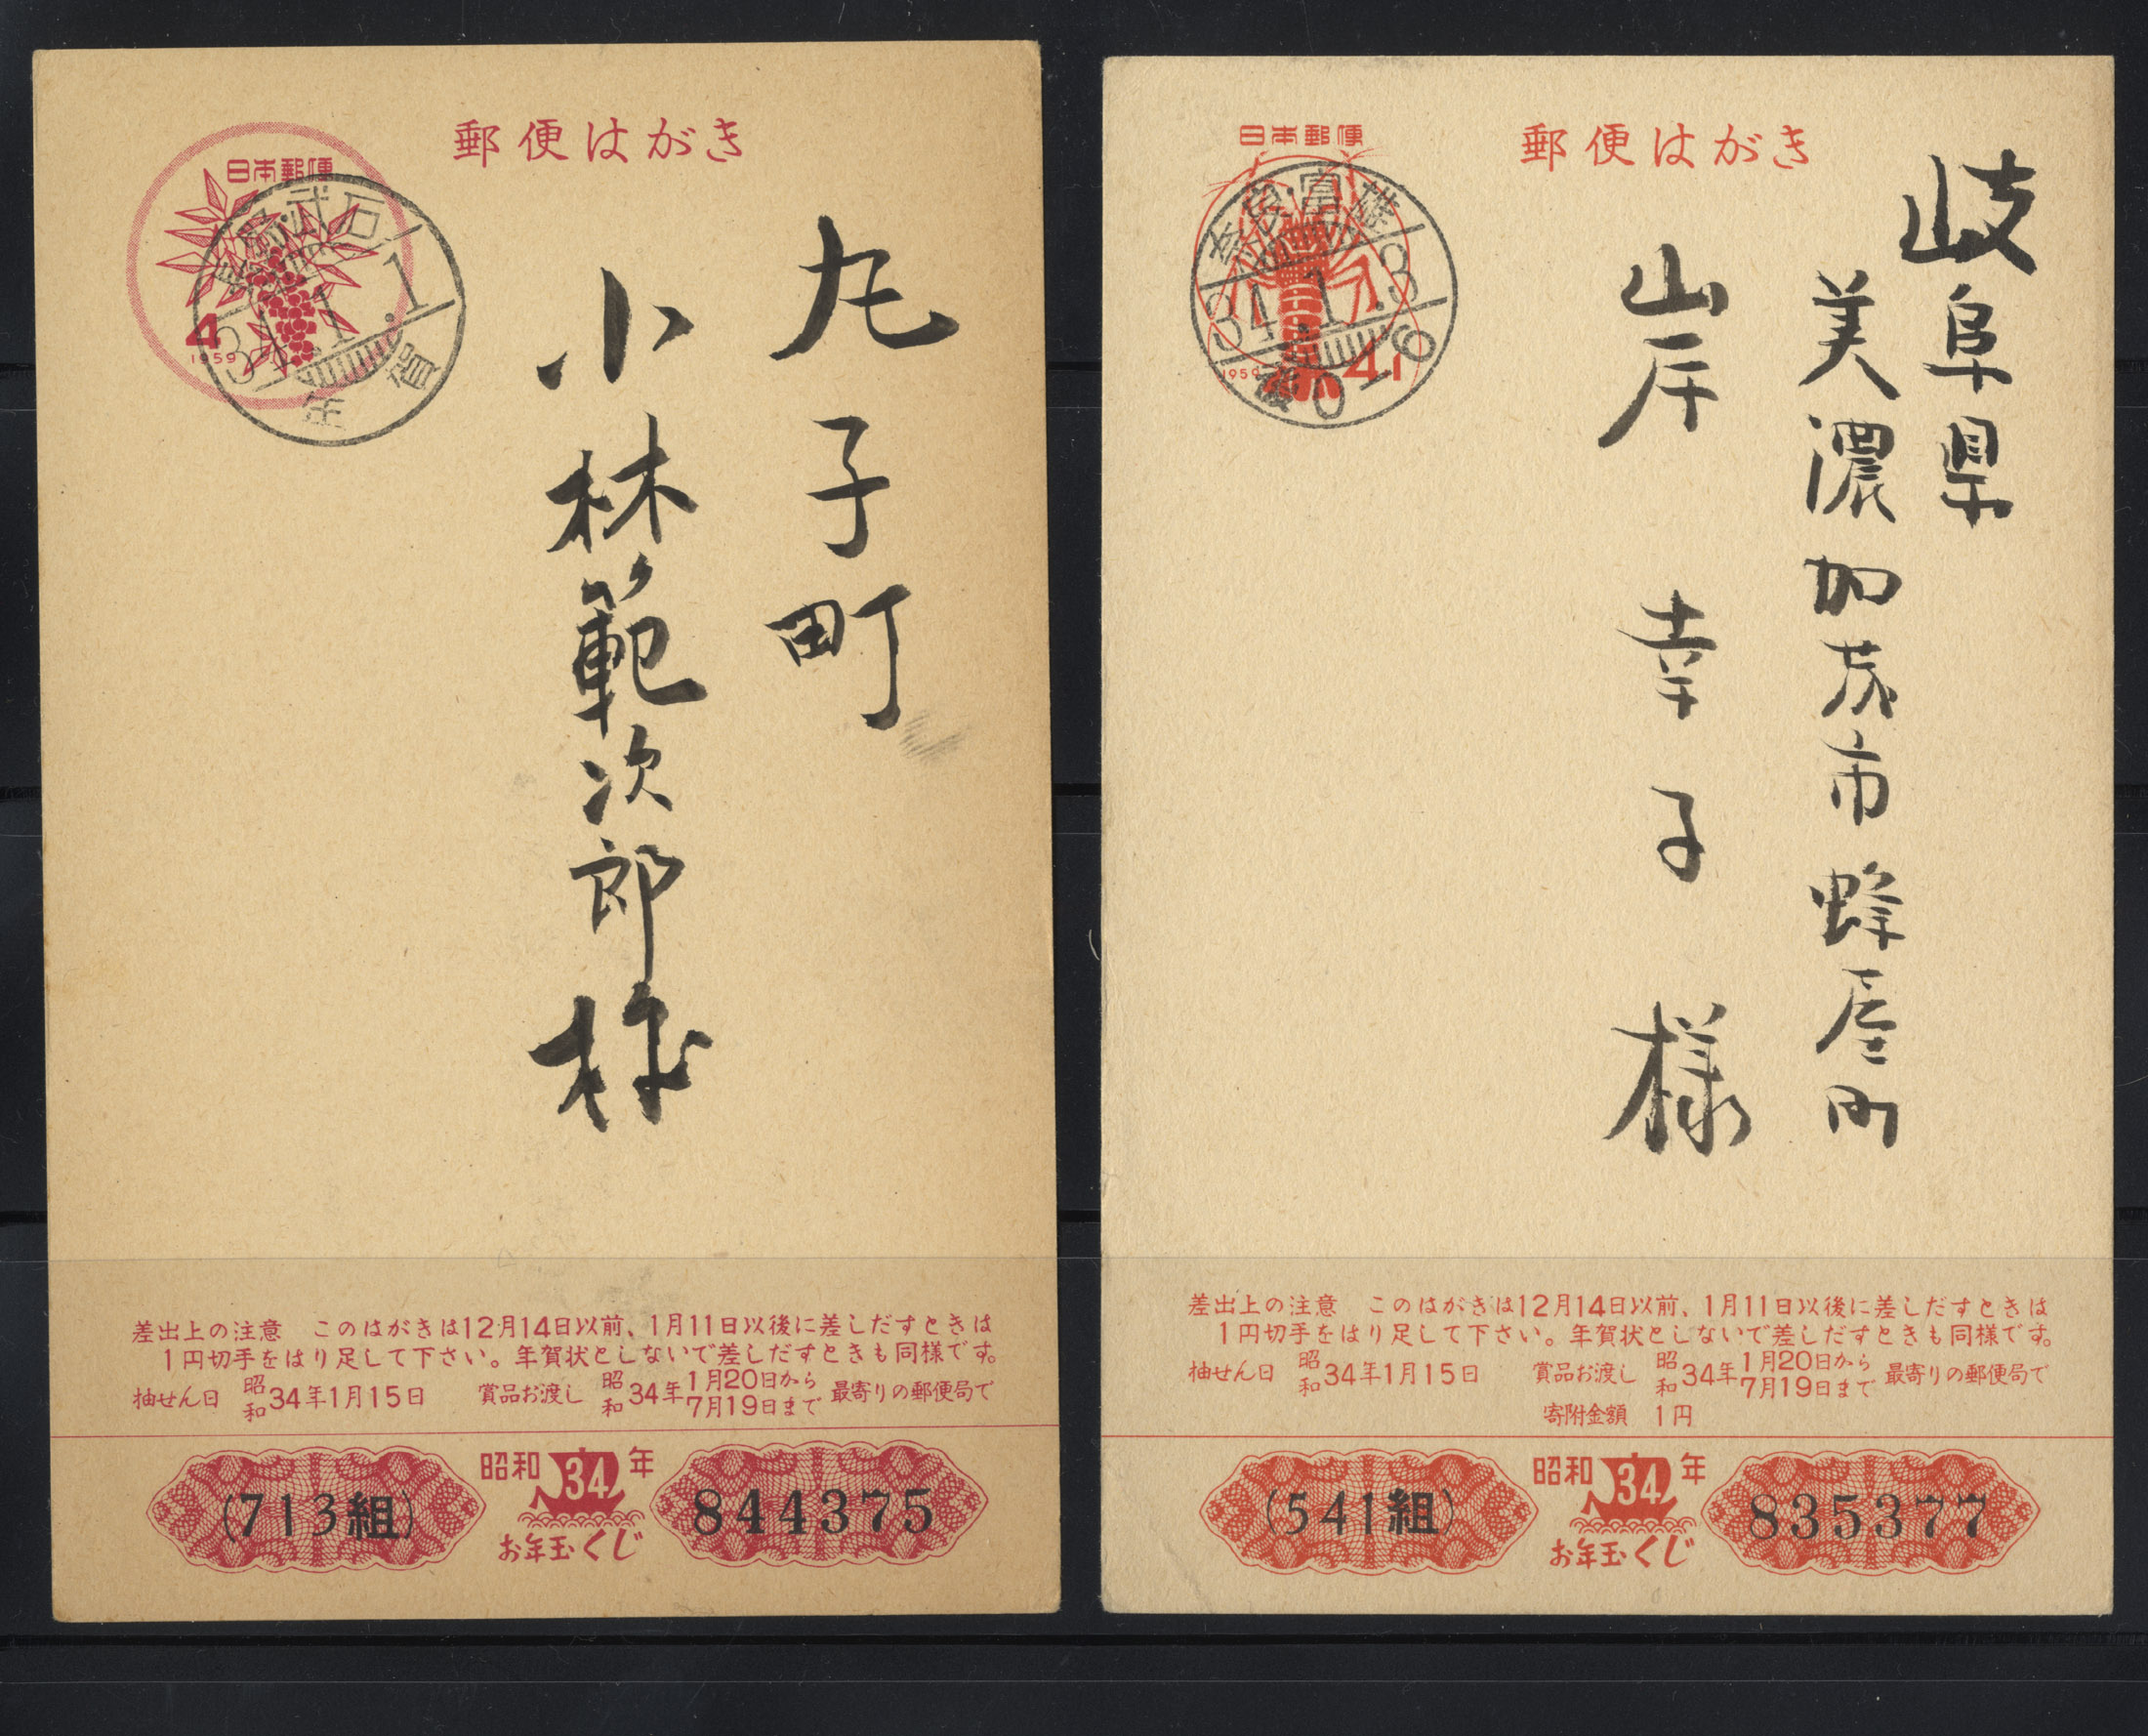 郵便はがき
日本郵便
長野・武石
34.1.1
年賀
4
1959
丸子町
小林範次郎様
差出上の注意 このはがきは12月14日以前、1月11日以後に差しだすときは
1円切手をはり足して下さい。年賀状としないで差しだすときも同様です。
抽せん日 昭和34年1月15日 賞品お渡し 昭和34年1月20日から7月19日まで 最寄りの郵便局で
(713組)
昭和34年
お年玉くじ
844375
郵便はがき
日本郵便
奈良・富雄
34.1.3
1959
4+1
岐阜県
美濃加茂市蜂屋町
山岸幸子様
差出上の注意 このはがきは12月14日以前、1月11日以後に差しだすときは
1円切手をはり足して下さい。年賀状としないで差しだすときも同様です。
抽せん日 昭和34年1月15日 賞品お渡し 昭和34年1月20日から7月19日まで 最寄りの郵便局で
寄附金額 1円
(541組)
昭和34年
お年玉くじ
835377